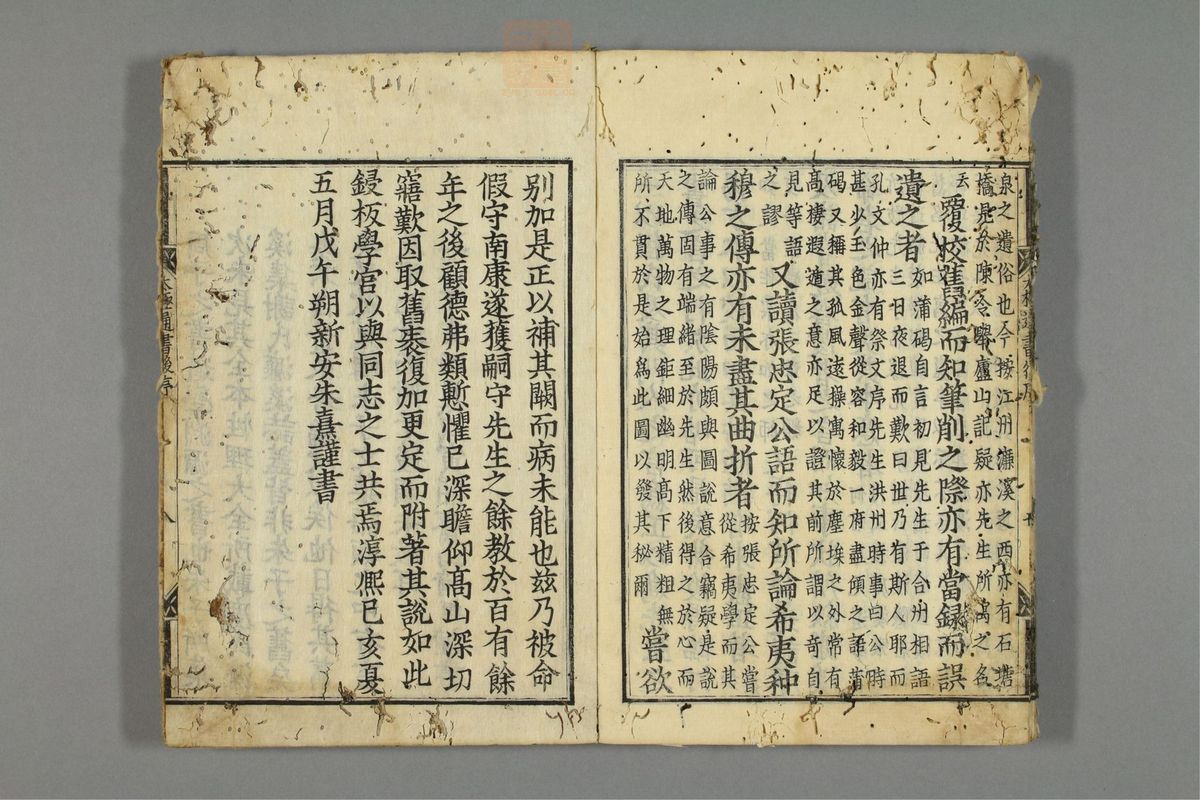 泉之遺俗也今按江州濂溪之西亦有石塘
橋見於陳令舉廬山記疑亦先生所寓之名
云
覆校舊編而知筆削之際亦有當録而誤
遺之者
如蒲碣自言初見先生于合州相語
三日夜退而歎曰世乃有斯人耶而
孔文仲亦有祭文序先生洪州時事曰公時
甚少玉色金聲從容和毅一府盡傾之語蒲
碣又稱其孤風遠操寓懷於塵埃之外常有
髙棲遐遁之意亦足以證其前所謂以奇自
見等語
之謬
又讀張忠定公語而知所論希夷种
穆之傳亦有未盡其曲折者
按張忠定公嘗
從希夷學而其
論公事之有陰陽頗與圖說意合竊疑是說
之傳固有端緒至於先生然後得之於心而
天地萬物之理鉅細幽明髙下精粗無
所不貫於是始爲此圖以發其秘爾
嘗欲
別加是正以補其闕而病未能也兹乃被命
假守南康遂獲嗣守先生之餘教於百有餘
年之後顧德弗類慙懼已深瞻仰髙山深切
寤歎因取舊袠復加更定而附著其說如此
鋟板學宫以與同志之士共焉淳熈已亥夏
五月戊午朔新安朱熹謹書
太極通書後序